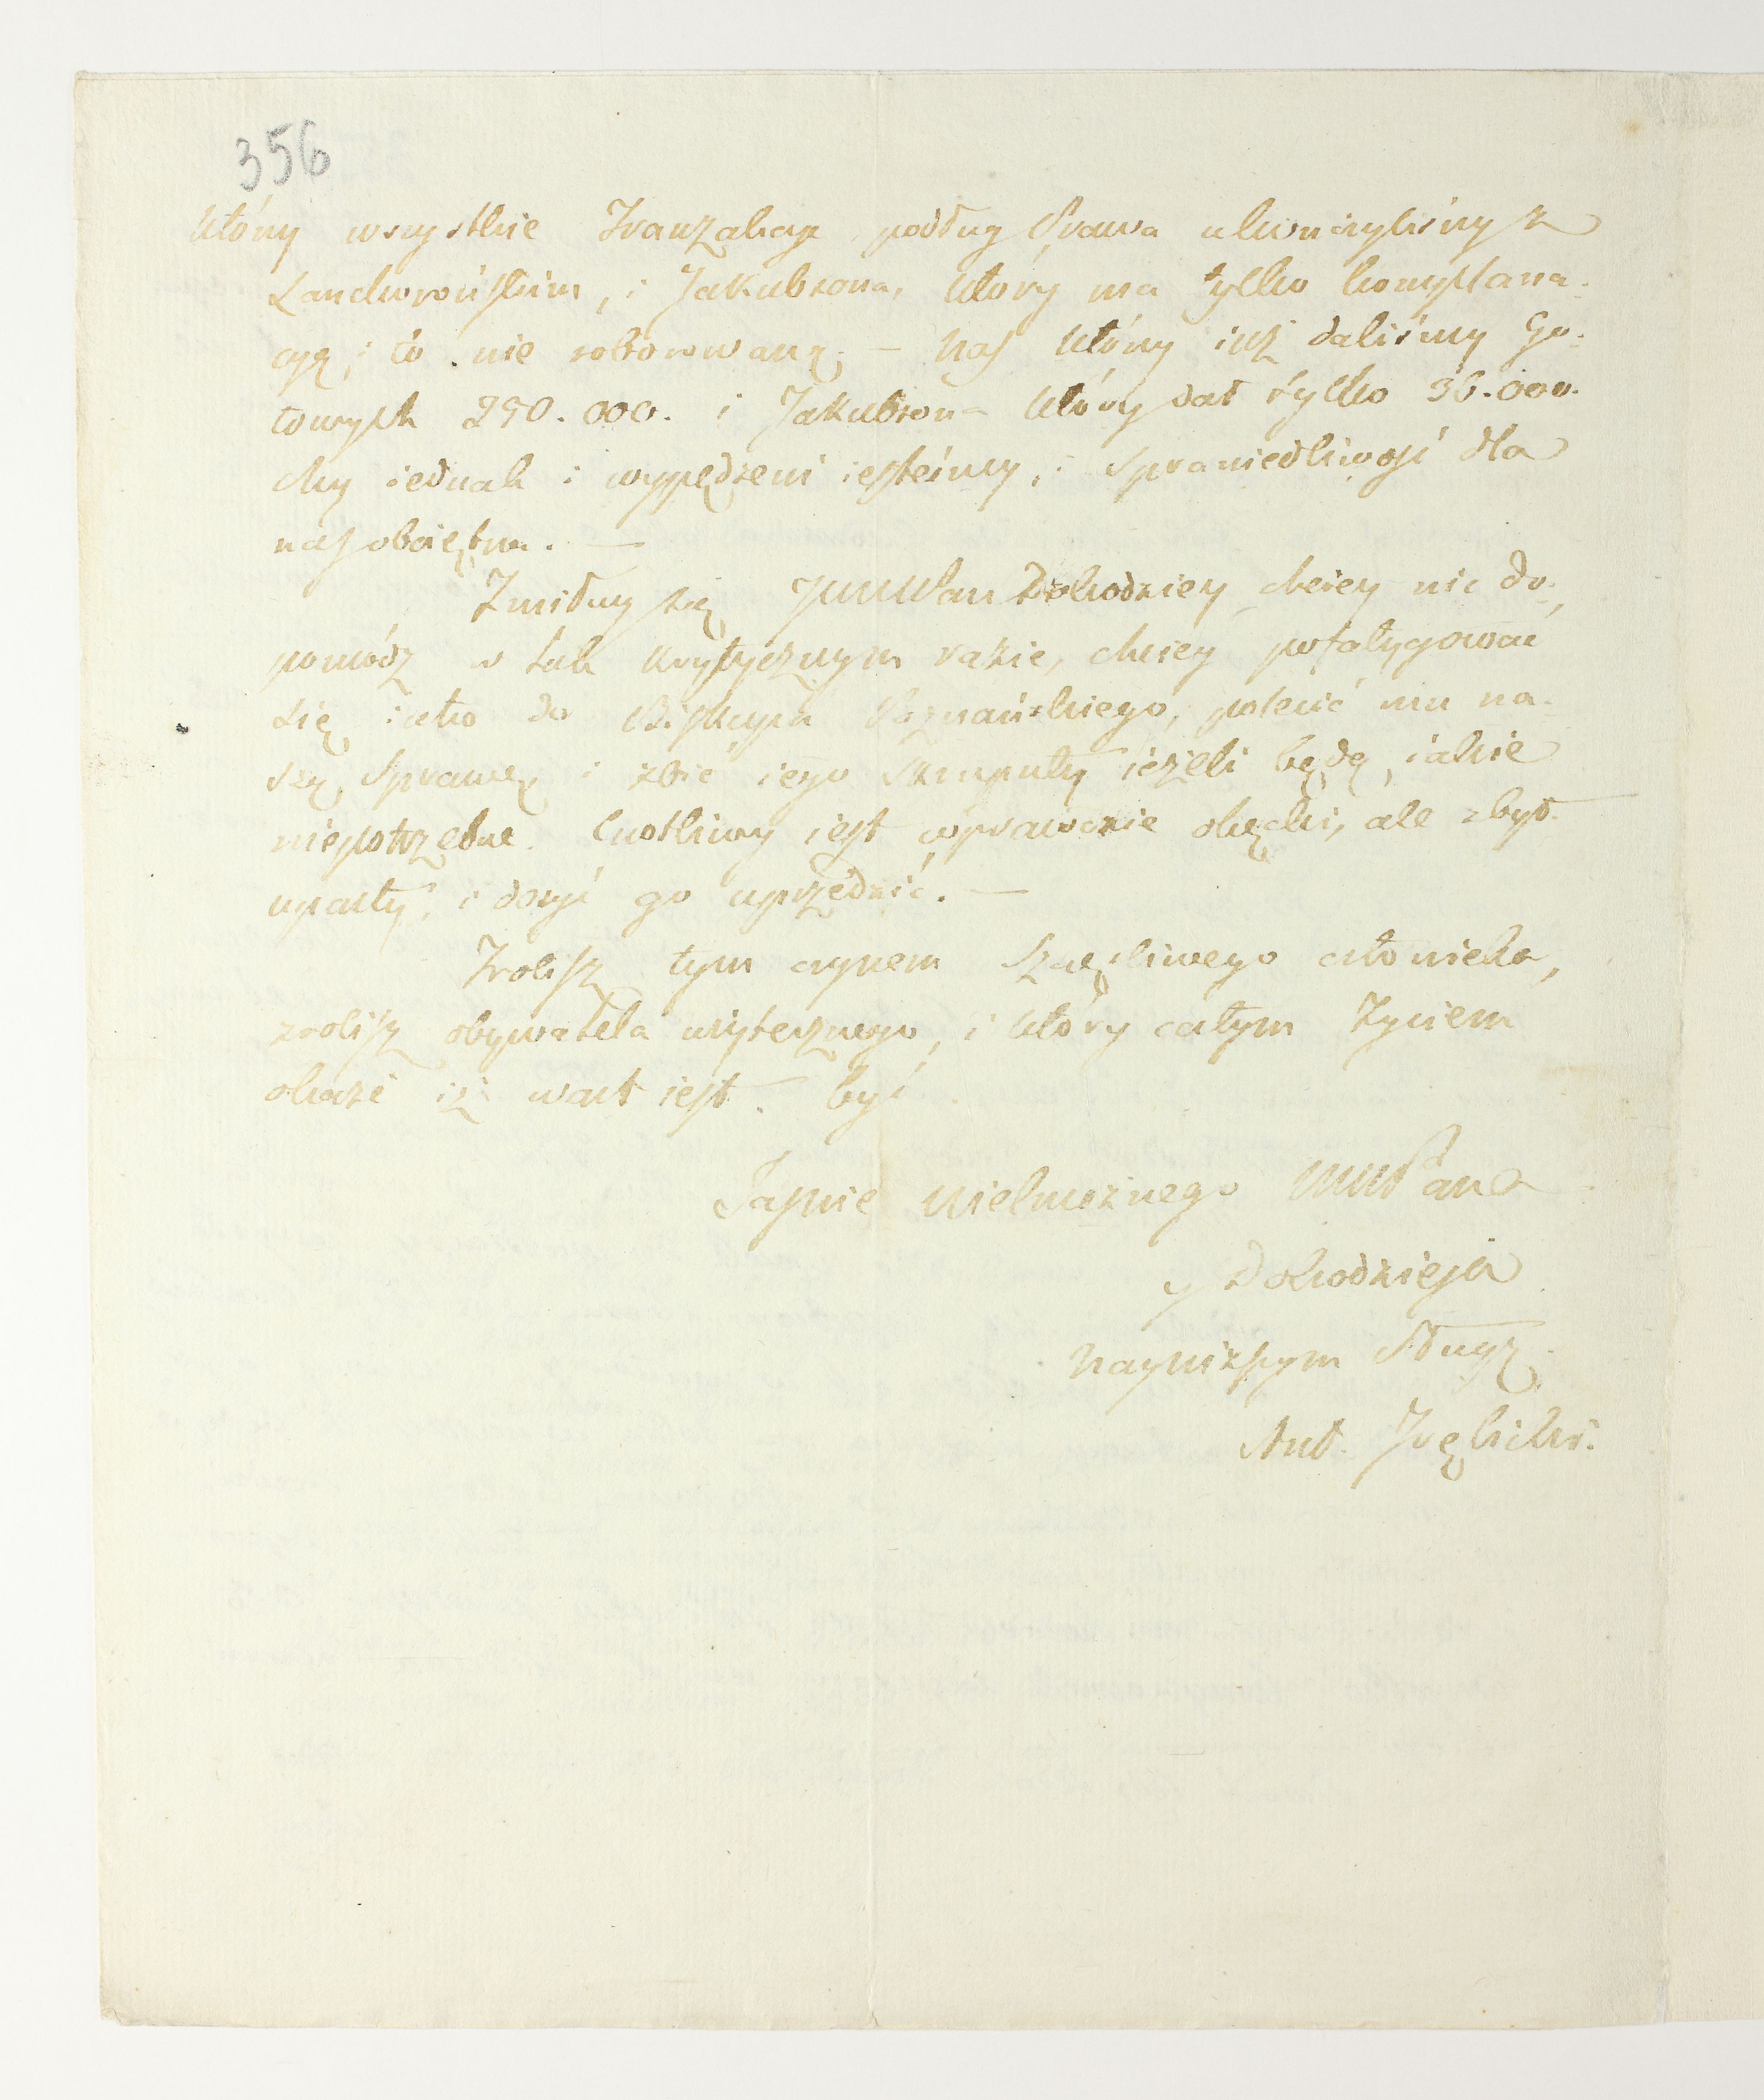 356
którzy wszystkie Tranzakcye podług Prawa ukończyliśmy z
Landworońskim, i Jakubsona, który ma tylko komplana-
cyą, i to nie roborowaną. — Nas którzy iuż daliśmy Go-
towych 290.000. i Jakubsona który dał tylko 36.000.
My iednak i wypędzeni iesteśmy, i Sprawiedliwość dla
nas obojętna. —
Zmiłuy się JWWPan Dobodziey, chciey nic do-
pomódz w tak krytycznym razie, chciey pofatygować
się iako do Biskupa Poznańskiego, polecić mu na-
szą Sprawę i zbić iego Skrupuły ieżeli będą iakie
niepotrzebne. Cnotliwy iest wprawdzie, ale zbyt
uparty, i dosyć go uprzedzić. —
Zrobisz tym czynem Szczęśliwego człowieka,
zrobisz obywatela użytecznego, i który całym życiem
okaże iż wart iest być
Jaśnie Wielmożnego WMPana
y Dobodzieja
Nayniższym Sługą
Ant.